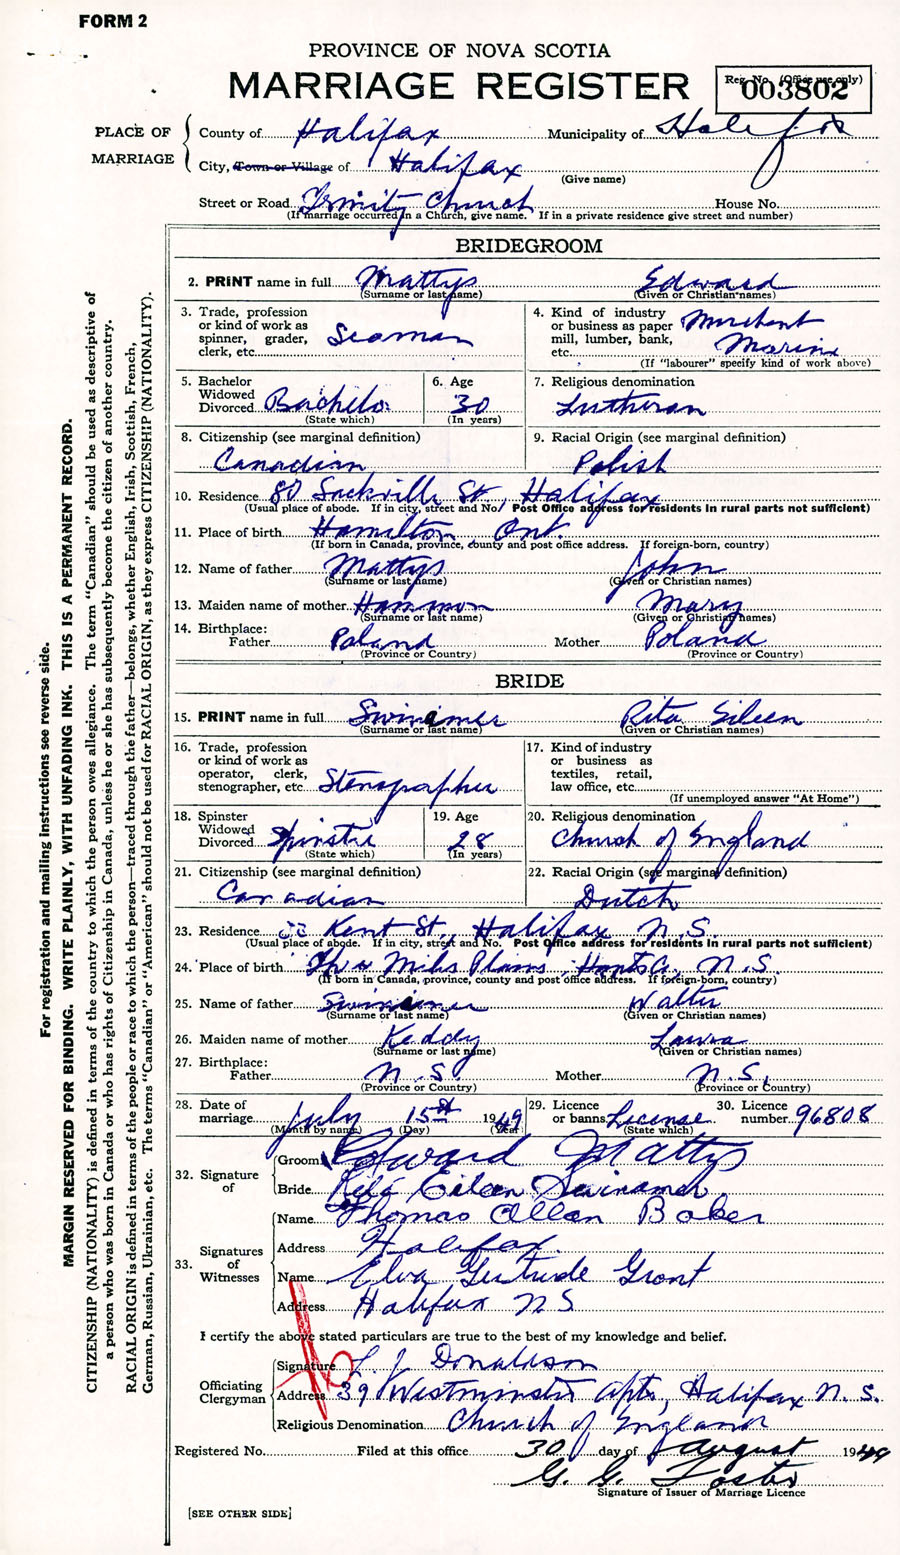 FORM 2
PROVINCE OF NOVA SCOTIA
MARRIAGE REGISTER
Reg. No. (Office use only)
003802
PLACE OF MARRIAGE
County of Halifax Municipality of Halifax
City, Town or Village of Halifax
(Give name)
Street or Road Trinity Church House No.
(If marriage occurred in a Church, give name. If in a private residence give street and number)
BRIDEGROOM
2. PRINT name in full Mattys Edward
(Surname or last name) (Given or Christian names)
3. Trade, profession or kind of work as spinner, grader, clerk, etc. Seaman
4. Kind of industry or business as paper mill, lumber, bank, etc. Merchant Marine
(If "labourer" specify kind of work above)
5. Bachelor Widowed Divorced Bachelor
(State which)
6. Age 30
(In years)
7. Religious denomination
Lutheran
8. Citizenship (see marginal definition)
Canadian
9. Racial Origin (see marginal definition)
Polish
10. Residence 80 Sackville St, Halifax
(Usual place of abode. If in city, street and No. Post Office address for residents in rural parts not sufficient)
11. Place of birth Hamilton, Ont.
(If born in Canada, province, county and post office address. If foreign-born, country)
12. Name of father Mattys John
(Surname or last name) (Given or Christian names)
13. Maiden name of mother Hammon Mary
(Surname or last name) (Given or Christian names)
14. Birthplace:
Father Poland Mother Poland
(Province or Country) (Province or Country)
BRIDE
15. PRINT name in full Swinamer Rita Eileen
(Surname or last name) (Given or Christian names)
16. Trade, profession or kind of work as operator, clerk, stenographer, etc. Stenographer
17. Kind of industry or business as textiles, retail, law office, etc.
(If unemployed answer "At Home")
18. Spinster Widowed Divorced Spinster
(State which)
19. Age 28
(In years)
20. Religious denomination
Church of England
21. Citizenship (see marginal definition)
Canadian
22. Racial Origin (see marginal definition)
Dutch
23. Residence Kent St., Halifax N.S.
(Usual place of abode. If in city, street and No. Post Office address for residents in rural parts not sufficient)
24. Place of birth Three Mile Plains, Hants Co., N.S.
(If born in Canada, province, county and post office address. If foreign-born, country)
25. Name of father Swinamer Walter
(Surname or last name) (Given or Christian names)
26. Maiden name of mother Keddy Laura
(Surname or last name) (Given or Christian names)
27. Birthplace:
Father N.S. Mother N.S.
(Province or Country) (Province or Country)
28. Date of marriage July 15th 1949
(Month by name) (Day) (Year)
29. Licence or banns License
(State which)
30. Licence number 96808
32. Signature of
Groom Edward Mattys
Bride Rita Eileen Swinamer
33. Signatures of Witnesses
Name Thomas Allan Baker
Address Halifax
Name Elva Gertrude Grant
Address Halifax NS
I certify the above stated particulars are true to the best of my knowledge and belief.
Officiating Clergyman
Signature L. J. Donaldson
Address 39 Westminster Apts, Halifax N.S.
Religious Denomination Church of England
Registered No. Filed at this office 30 day of August 1949
G. G. Foster
Signature of Issuer of Marriage Licence
[SEE OTHER SIDE]
For registration and mailing instructions see reverse side.
MARGIN RESERVED FOR BINDING. WRITE PLAINLY, WITH UNFADING INK. THIS IS A PERMANENT RECORD.
CITIZENSHIP (NATIONALITY) is defined in terms of the country to which the person owes allegiance. The term "Canadian" should be used as descriptive of
a person who was born in Canada or who has rights of Citizenship in Canada, unless he or she has subsequently become the citizen of another country.
RACIAL ORIGIN is defined in terms of the people or race to which the person—traced through the father—belongs, whether English, Irish, Scottish, French,
German, Russian, Ukrainian, etc. The terms "Canadian" or "American" should not be used for RACIAL ORIGIN, as they express CITIZENSHIP (NATIONALITY).